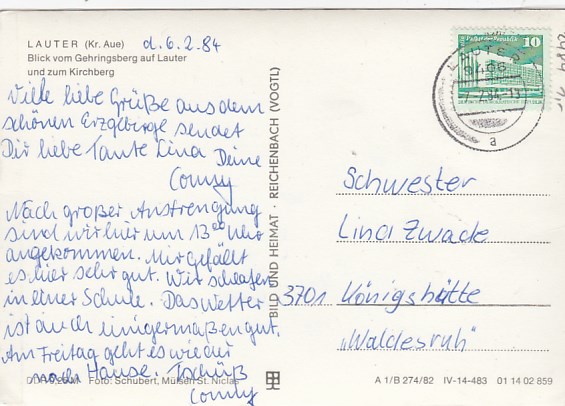 LAUTER (Kr. Aue) d. 6.2.84
Blick vom Gehringsberg auf Lauter
und zum Kirchberg
Viele liebe Grüße aus dem
schönen Erzgebirge sendet
Dir liebe Tante Lina Deine
Conny
Nach großer Anstrengung
sind wir hier um 13⁰⁰ Uhr
angekommen. Mir gefällt
es hier sehr gut. Wir schlafen
in einer Schule. Das Wetter
ist auch einigermaßen gut.
Am Freitag geht es wieder
nach Hause. Tschüß
Conny
Foto: Schubert, Mülsen St. Niclas
BILD UND HEIMAT · REICHENBACH (VOGTL)
10
LAUTER
9406
a
Schwester
Lina Zwade
3701 Königshütte
„Waldesruh"
A 1/B 274/82 IV-14-483 01 14 02 859